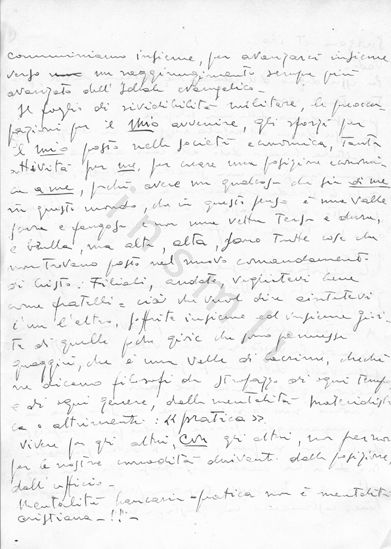 comunichiamo insieme, per avanzarci insieme
verso un raggiungimento sempre più
avanzato dell'Ideale evangelico -
Il foglio di rivedibilità militare, le preoccu
pazioni per il mio avvenire, gli sforzi per
il mio posto nella società economica, tanta
attività per me, per creare una posizione econom
a me, poichè avere un qualcosa che sia di me
in questo mondo, che in questo senso è una valle
e fangosa e non una vetta tersa e dura,
e brulla, ma alta, alta, sono tutte cose che
non trovano posto nel nuovo comandamento
di Cristo: Figlioli, andate, vogliatevi bene
come fratelli = ciò che vuol dire aiutatevi
l'un l'altro, soffrite insieme ed insieme gioi
te di quelle poche gioie che sono permesse
quaggiù, che è una valle di lacrime, checchè
ne dicano filosofi da strapazzo di ogni tempo
e di ogni genere, dalla mentalità materialisti
ca o altrimenti: «pratica».
Vivere per gli altri, con gli altri, non
per nostre comodità derivanti dalla posizione,
dall'ufficio -
Mentalità bancaria - pratica non è mentalità
cristiana - !! -